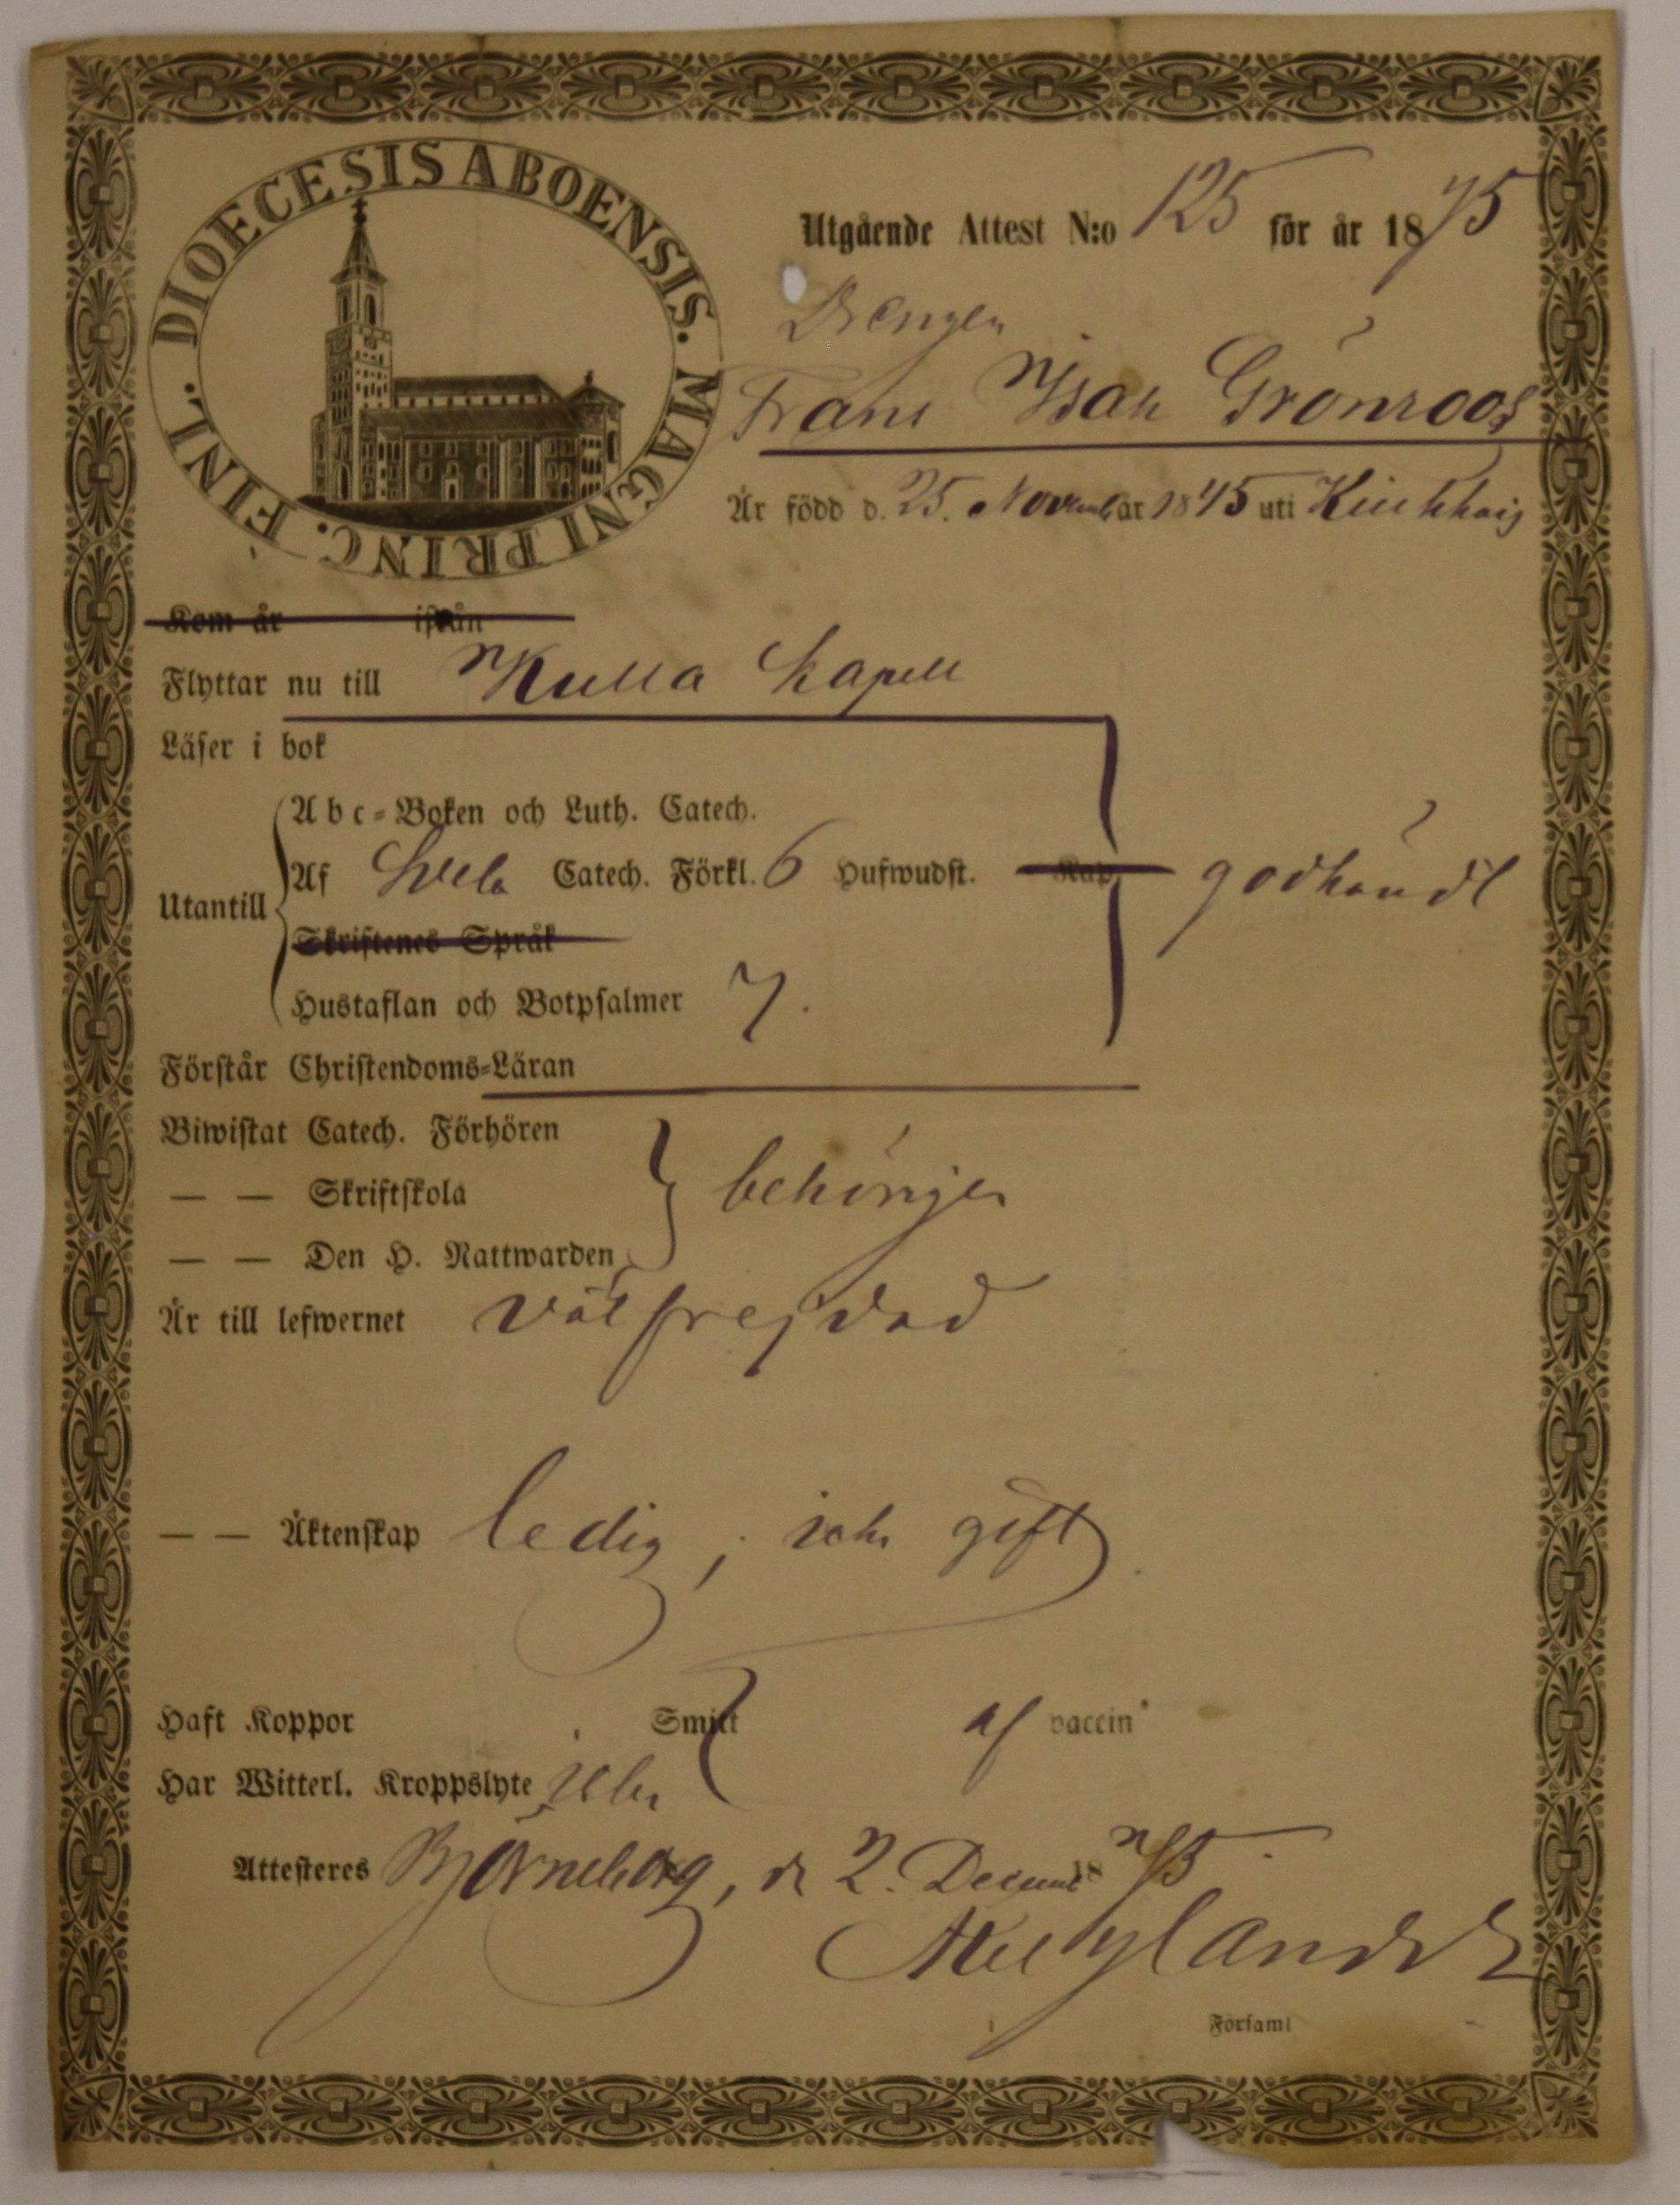 DIOECESIS ABOENSIS. MAGNI PRINC. FINL.
Utgående Attest N:o 125 för år 1875
Drengen
Frans Isak Grönroos
Är född d. 25. Novemb. år 1845 uti
Kom år ifrån
Flyttar nu till Kulla Kapell
Läser i bok
Abc-Boken och Luth. Catech.
Utantill Af Sveb. Catech. Förkl. 6 Hufwudst. Kap. godkändt
Skriftenes Språk
Hustaflan och Botpsalmer 7.
Förstår Christendoms-Läran
Biwistat Catech. Förhören
— — Skriftskola behörigen
— — Den H. Nattwarden
Är till lefwernet välfrejdad
— — Äktenskap ledig, icke gift
Haft Koppor Smitt af vaccin
Har Witterl. Kroppslyte icke
Attesteres Björneborg, d. 2. Decemb 1875
i Församl